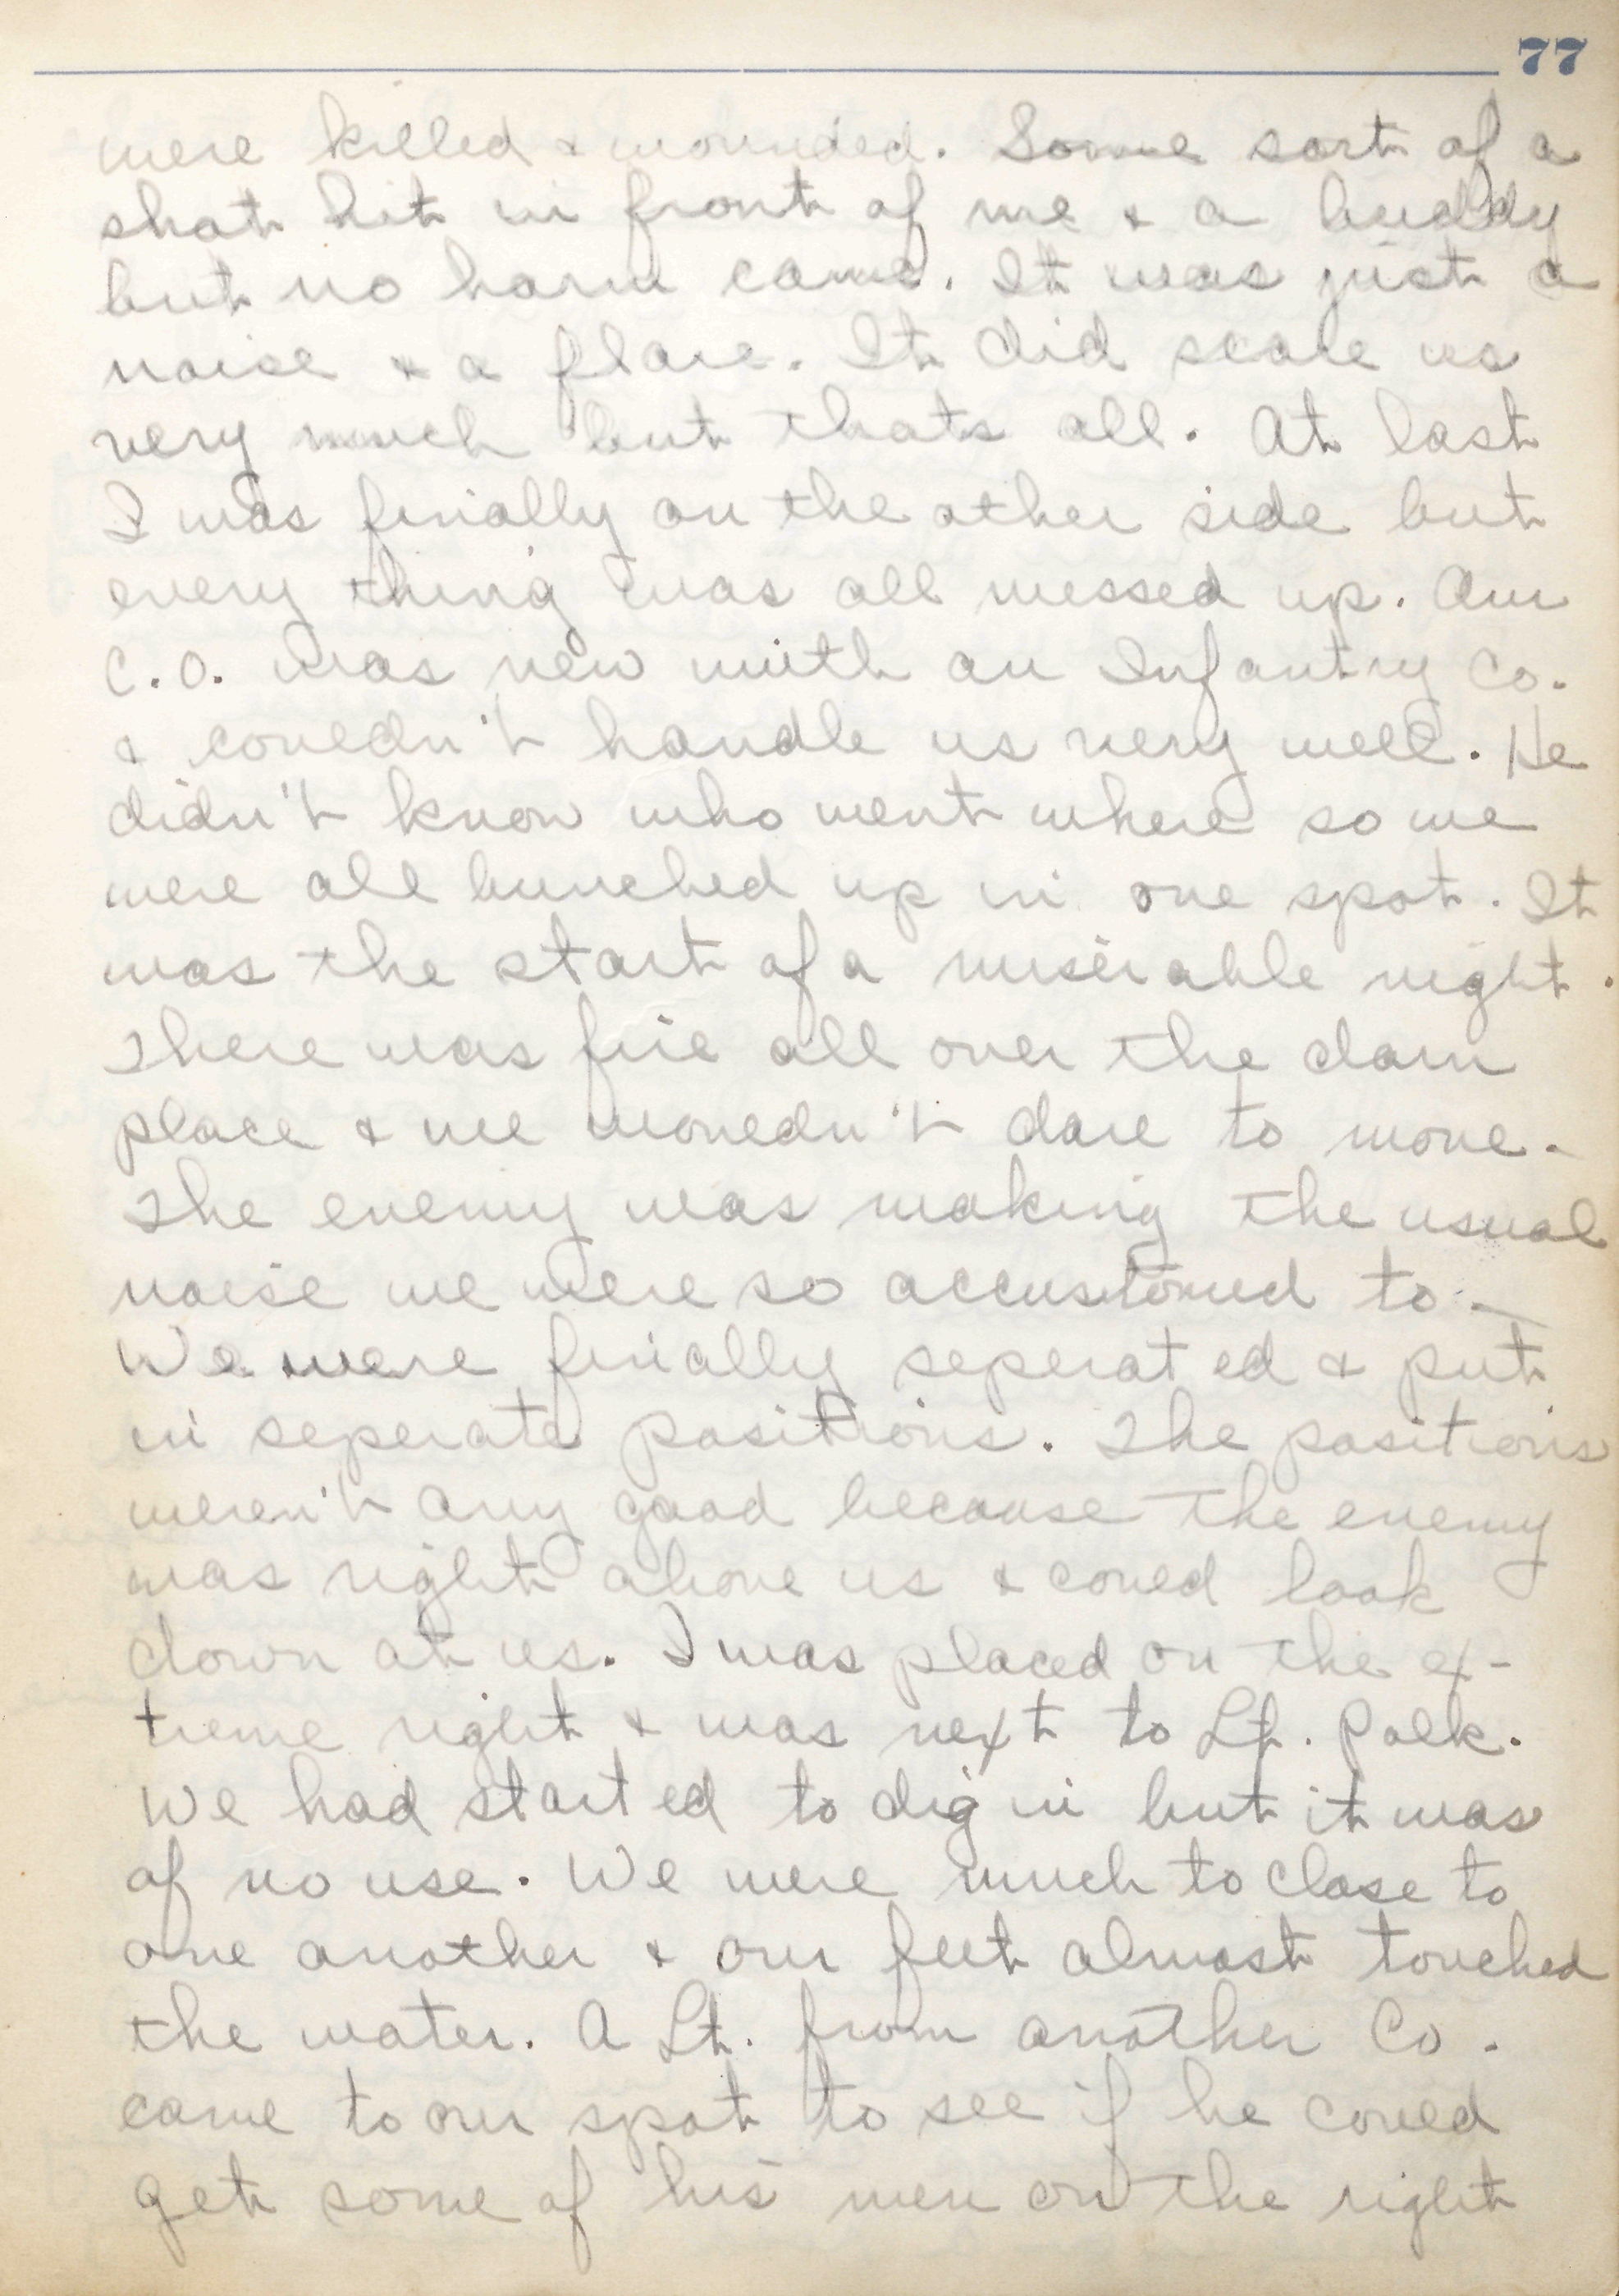 77
were killed & wounded. Some sort of a
shot hit in front of me & a buddy
but no harm came. It was just a
noise & a flare. It did scare us
very much but thats all. At last
I was finally on the other side but
every thing was all messed up. Our
C.O. was new with an Infantry Co.
& couldn't handle us very well. He
didn't know who went where so we
were all bunched up in one spot. It
was the start of a miserable night.
There was fire all over the dam
place & we wouldn't dare to move.
The enemy was making the usual
noise we were so accustomed to.
We were finially seperated & put
in seperate positions. The positions
weren't any good because the enemy
was right above us & could look
down at us. I was placed on the ex-
treme right & was next to Lt. Polk.
We had started to dig in but it was
of no use. We were much to close to
one another & our feet almost touched
the water. A Lt. from another Co.
came to our spot to see if he could
get some of his men on the right